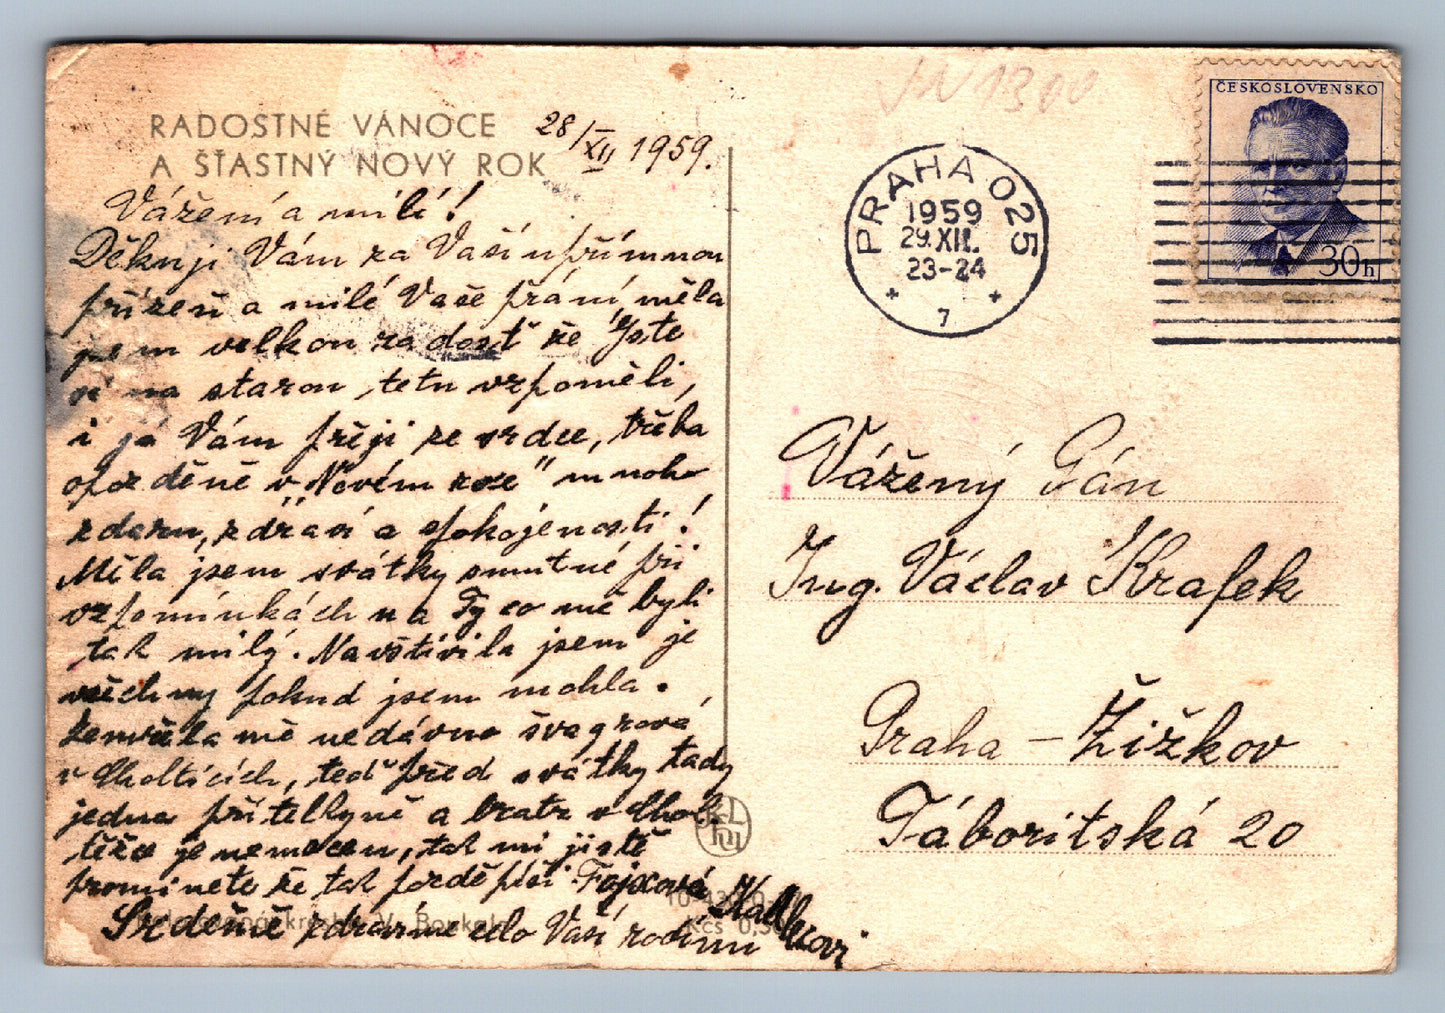 RADOSTNÉ VÁNOCE
A ŠŤASTNÝ NOVÝ ROK
28/XII 1959.
Vážení a milí!
Děkuji Vám za Vaší upřímnou
přízeň a milé Vaše přání, měla
jsem velkou radost že jste
si na starou tetu vzpoměli,
i já Vám přeji ze srdce, třeba
opozděně v „Novém roce" mnoho
zdaru, zdraví a spokojenosti!
Měla jsem svátky smutné při
vzpomínkách na Ty co mě byli
tak milý. Navštívila jsem je
všechny pokud jsem mohla.
Zemřela mě nedávno švagrová
v Cholticích, teď před svátky tady
jedna přítelkyně a bratr v Chol.
těžce je nemocen, tak mi jistě
prominete že tak pozdě píši Fejxová
Srděčně zdravíme celo Vaší rodinu
Kčs 0,
ČESKOSLOVENSKO
30h
PRAHA 025
1959
29.XII.
23-24
7
Vážený Pán
Ing. Václav Krafek
Praha - Žižkov
Táboritská 20